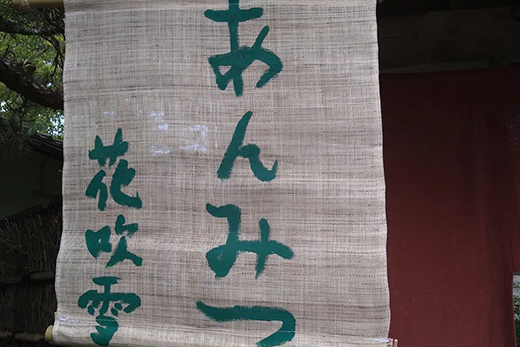 あんみつ
花吹雪